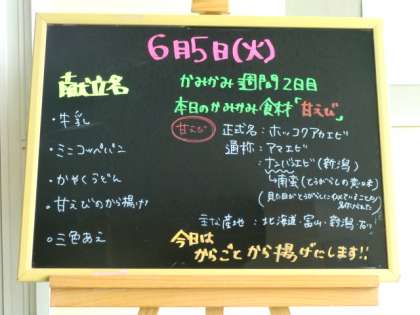 6月5日(火)
献立名
・牛乳
・ミニコッペパン
・かやくうどん
・甘えびのから揚げ
・三色あえ
かみかみ週間2日目
本日のかみかみ食材「甘えび」
甘えび
正式名:ホッコクアカエビ
通称:アマエビ
:ナンバンエビ(新潟)
↳南蛮(とうがらしの意味)
(見た目がとうがらしににていることから
主な産地:北海道・富山・新潟・石川
今日は
からごとから揚げにします!!